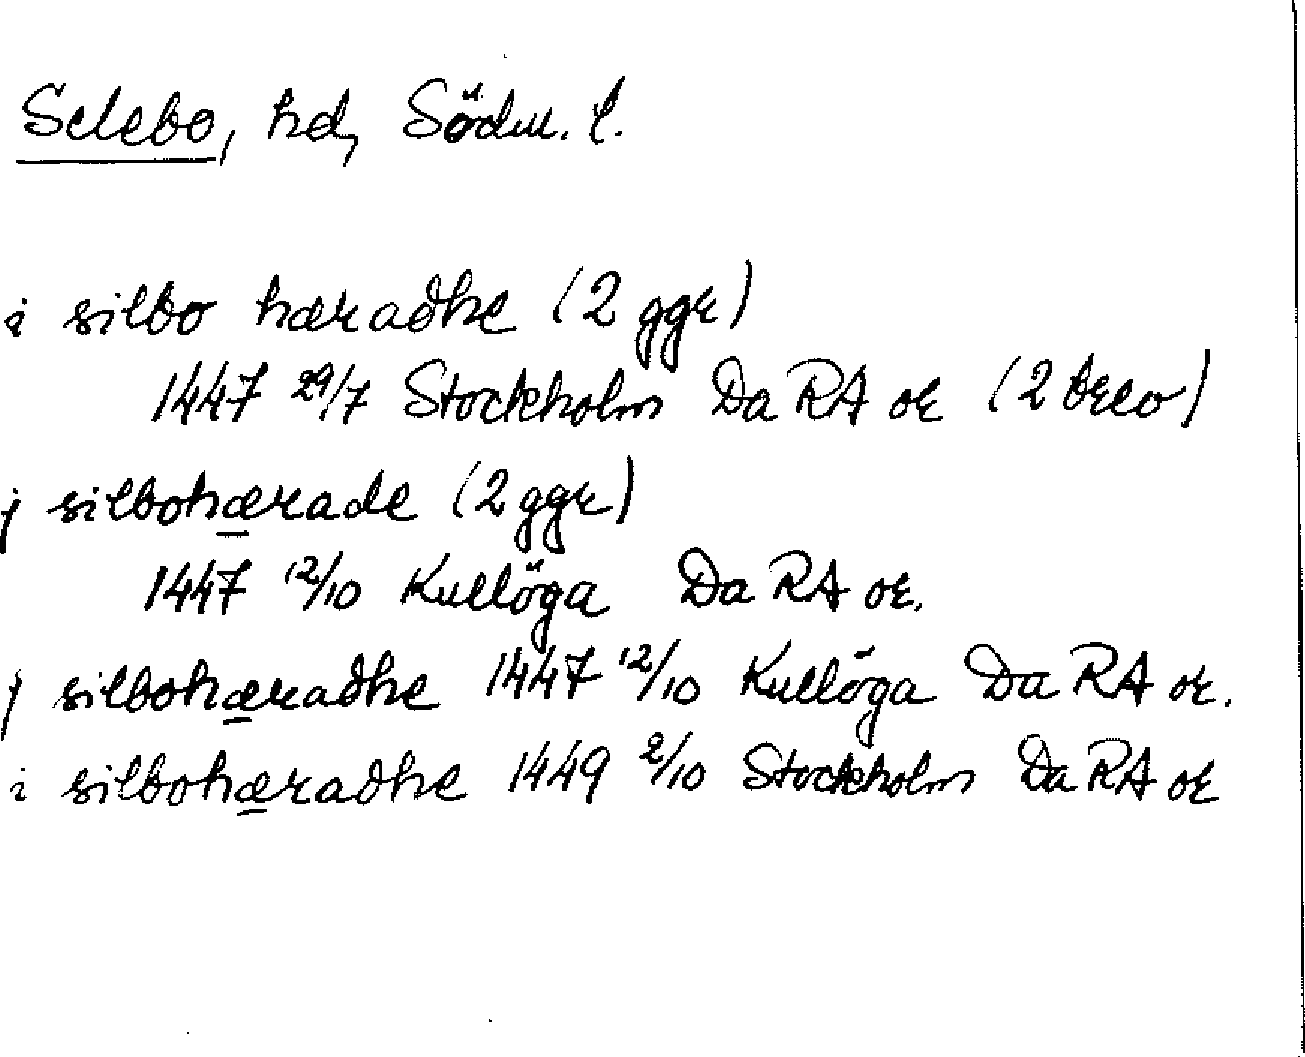 Selebo, hd, Södm. l.
i silbo hæradhe (2 ggr)
1447 29/7 Stockholm Da RA or (2 brev)
j silbohærade (2 ggr)
1447 12/10 Kullöga Da RA or.
j silbohæradhe 1447 12/10 Kullöga Da RA or.
i silbohæradhe 1449 2/10 Stockholm Da RA or